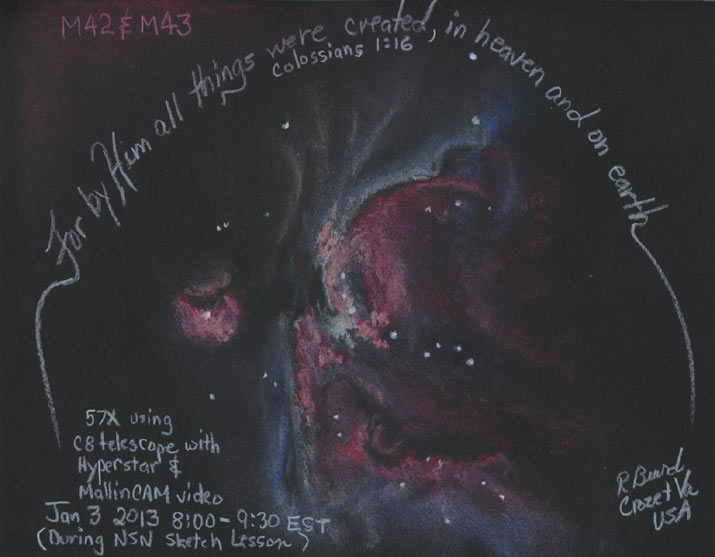 M42 & M43
For by Him all things were created, in heaven and on earth
Colossians 1:16
57X using
C8 telescope with
Hyperstar &
MallinCAM video
Jan 3 2013 8:00-9:30 EST
(During NSN Sketch Lesson)
R
Crozet Va
USA